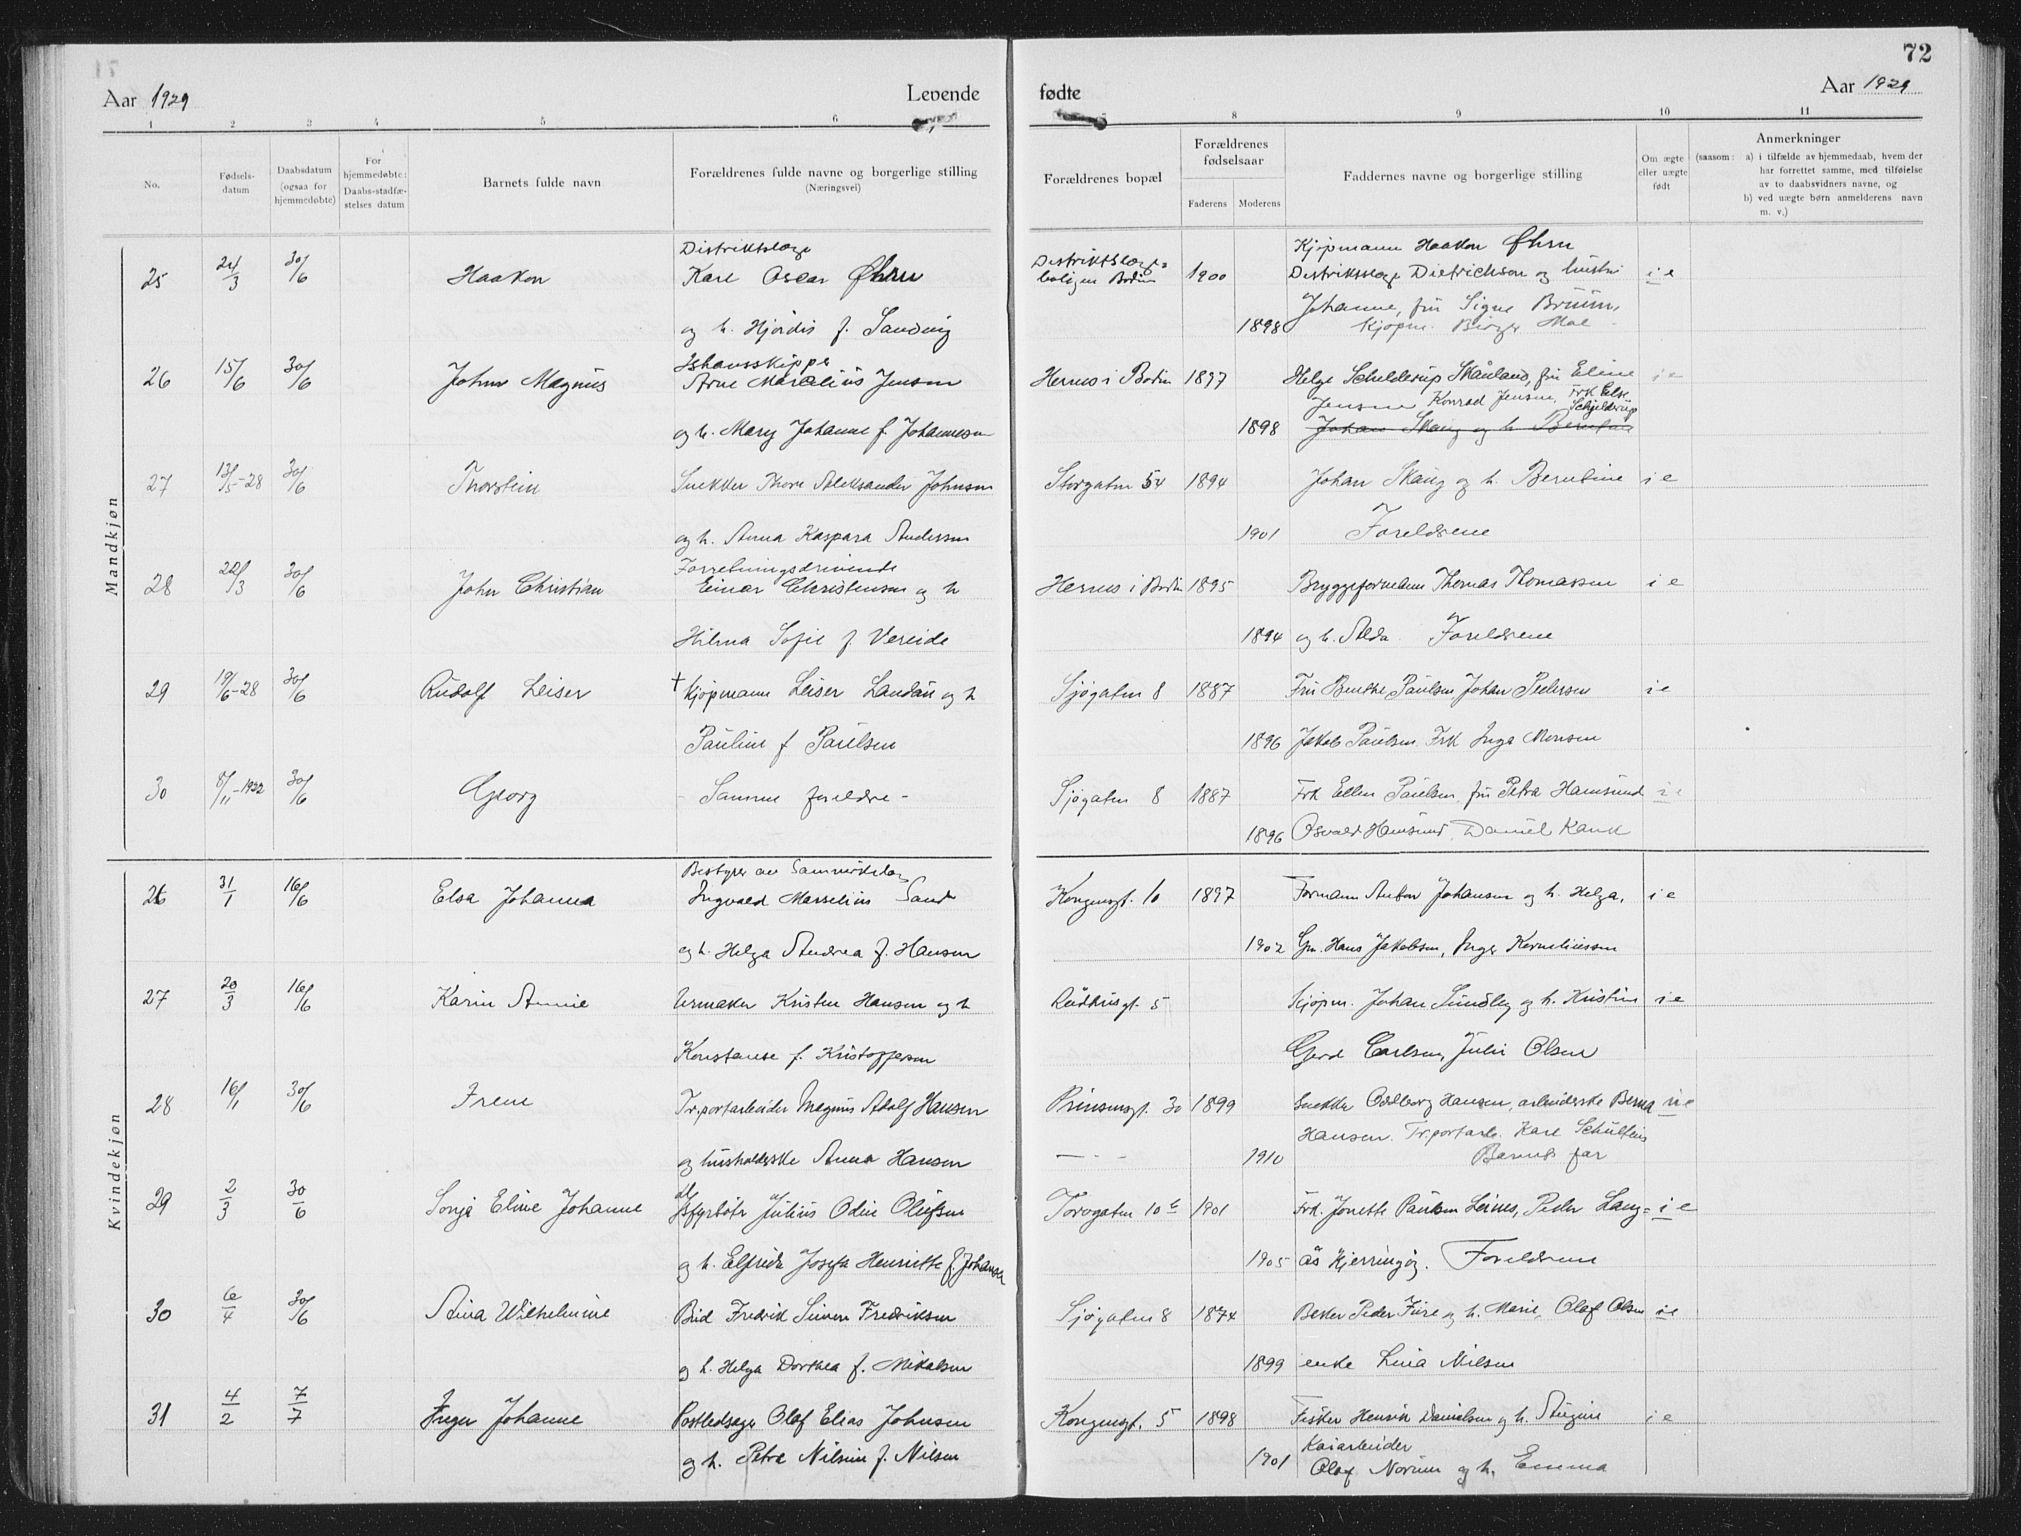 72
Aar 1929 Levende fødte Aar 1929
1 2 3 4 5 6 8 9 10 11
No.
Fødsels-
datum
Daabsdatum
(ogsaa for
hjemmedøbte)
For
hjemmedøbte:
Daabs-stadfæ-
stelses datum
Barnets fulde navn
Forældrenes fulde navne og borgerlige stilling
(Næringsvei)
Forældrenes bopæl
Forældrenes
fødselsaar
Faderens Moderens
Faddernes navne og borgerlige stilling
Om ægte
eller uægte
født
Anmerkninger
(saasom: a) i tilfælde av hjemmedaab, hvem der
har forrettet samme, med tilføielse
av to daabsvidners navne, og
b) ved uægte børn anmelderens navn
m. v.)
Mandkjøn
Distriktslæge Kjøpmann Haakon Øhrn
25 24/3 30/6 Haakon Karl Oscar Øhrn Distriktslæge-
boligen Bodin 1900 Distriktslæge Dietrichson og hustru i e
og h. Hjørdis f. Sandvig 1898 Johanne, fru Signe Bruun,
Kjøpm. Birger Moe
Ishavsskipper
26 15/6 30/6 John Magnus Arne Marelius Jensen Hernes i Bodin 1897 Helge Schelderup Skånland, fru Eline i e
Jensen Konrad Jensen, Frk Else
Schjelderup
og h. Mary Johanne f. Johannesen 1898 Johan Skaug og h. Berntine
27 13/5-28 30/6 Thorstein Snekker Thore Aleksander Johnsen Storgaten 54 1894 Johan Skaug og h. Berntine i e
og h. Anna Kaspara Andersen 1901 Foreldrene
Forretningsdrivende
28 22/3 30/6 John Christian Einar Christensen og h Hernes i Bodin 1895 Bryggeformann Thomas Thomassen i e
Hilma Sofie f. Vereide 1894 og h. Alda. Foreldrene
29 19/6-28 30/6 Rudolf Leiser † Kjøpmann Leiser Landau og h Sjøgaten 8 1887 Fru Benthe Paulsen, Johan Pedersen i e
Pauline f Paulsen 1896 Jakob Paulsen Frk Inga Monsen
30 8/11-1922 30/6 Georg - Samme foreldre - Sjøgaten 8 1887 Frk Ellen Paulsen fru Petra Hamsund i e
1896 Osvald Hamsund, Daniel Kank
Kvindekjøn
Bestyrer av Samvirkelag
26 31/1 16/6 Elsa Johanna Ingvald Marselius Sand Kongensgt. 10 1897 Formann Anton Johansen og h. Helga, i e
og h. Helga Andrea f. Hansen 1902 Gm. Hans Jakobsen, Inger Korneliussen
27 20/3 16/6 Karin Annie Urmaker Kristen Hansen og h Rådhusgt. 5 Kjøpm. Johan Sundby og h. Kristine i e
Konstanse f. Kristoffersen Gerd Carlsen, Julie Olsen
28 16/1 30/6 Irene Tr.portarbeider Magnus Adolf Hansen Prinsensgt. 30 1899 Snekker Oddborg Hansen, arbeiderske Berna u e
Hansen. Tr.portarb. Karl Schultzus
og husholderske Anna Hansen — - - 1910 Barnets far
29 2/3 30/6 Sonja Eline Johanne Isfyrbøter Julius Odin Olufsen Torvgaten 10 b 1901 Frk. Jonette Paulsen Leines, Peder Lang= i e
og h. Elfrida Josefa Henriette f. Johansen 1905 ås Kjerringøy. Foreldrene
30 6/4 30/6 Aina Wilhelmine Bud Fredrik Simon Fredriksen Sjøgaten 8 1874 Beker Peder Fure og h. Marie, Olaf Olsen i e
og h. Helga Dorthea f. Mikalsen 1899 enke Lina Nilsen
31 4/2 7/7 Inger Johanne Postledsager Olaf Elias Johnsen Kongensgt. 5 1898 Fisker Henrik Danielsen og h. Augine i e
og h. Petra Nilsine f. Nilsen 1901 Kaiarbeider
Olaf Norum og h. Emma